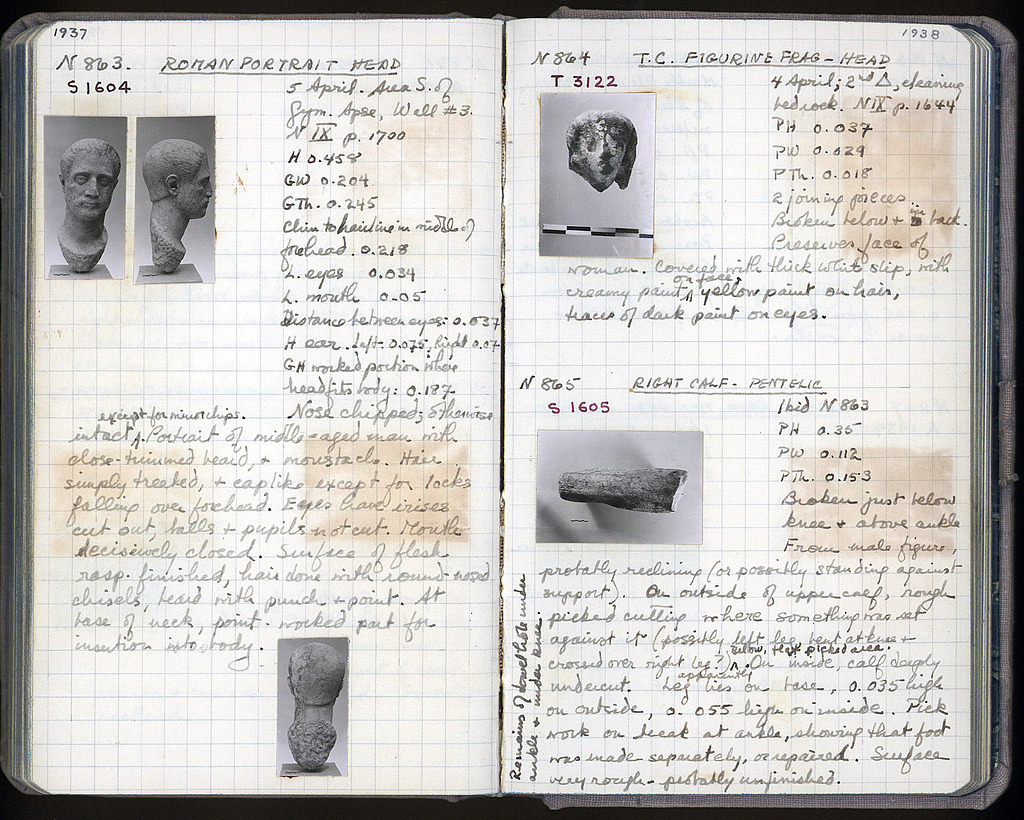 1937
N 863. ROMAN PORTRAIT HEAD
S 1604
5 April. Area S. of
Gym. Apse, Well #3.
N IX p. 1700
H 0.458
GW 0.204
GTh. 0.245
Chin to hairline in middle of
forehead. 0.218
L. eyes 0.034
L. mouth 0.05
Distance between eyes: 0.037
H ear. Left. 0.075, Right 0.07
GH worked portion where
head fits body: 0.187
Nose chipped; otherwise
except for minor chips.
intact ^. Portrait of middle-aged man with
close-trimmed beard, + moustache. Hair
simply treated, + caplike except for locks
falling over forehead. Eyes have irises
cut out, balls + pupils not cut. Mouth
decisively closed. Surface of flesh
rasp-finished, hair done with round-nosed
chisels, beard with punch + point. At
base of neck, point-worked part for
insertion into body.
1938
N 864 T.C. FIGURINE FRAG - HEAD
T 3122
4 April; 2nd Δ, cleaning
bedrock. N IX p. 1644
PH 0.037
PW 0.029
PTh. 0.018
2 joining pieces
Broken below + in back.
Preserves face of
woman. Covered with thick white slip, with
on face,
creamy paint ^ yellow paint on hair,
traces of dark paint on eyes.
N 865 RIGHT CALF - PENTELIC
S 1605
Ibid N 863
PH 0.35
PW 0.112
PTh. 0.153
Broken just below
knee + above ankle
From male figure,
probably reclining (or possibly standing against
support). On outside of upper calf, rough
picked cutting where something was set
against it (possibly left leg bent at knee +
below, that picked area.
crossed over right leg?) ^ On inside, calf deeply
apparently
undercut. Leg lies on base, 0.035 high
on outside, 0.055 high on inside. Pick
work on break at ankle, showing that foot
was made separately, or repaired. Surface
very rough - probably unfinished.
Remains of dowel hole under
ankle + under knee